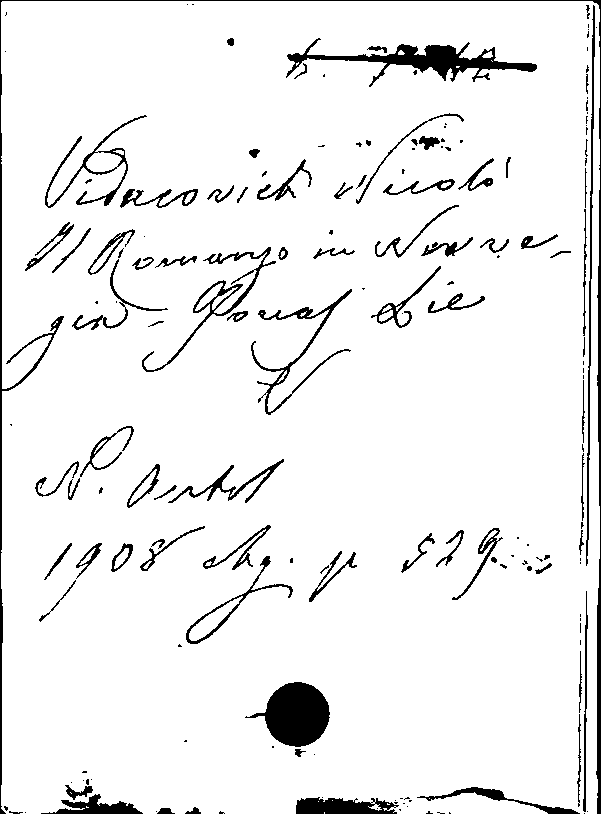 Vidacovich Nicolò
Il Romanzo in Norve-
gia - Jonas Lie
N. Antol
1908 Mg. p 529